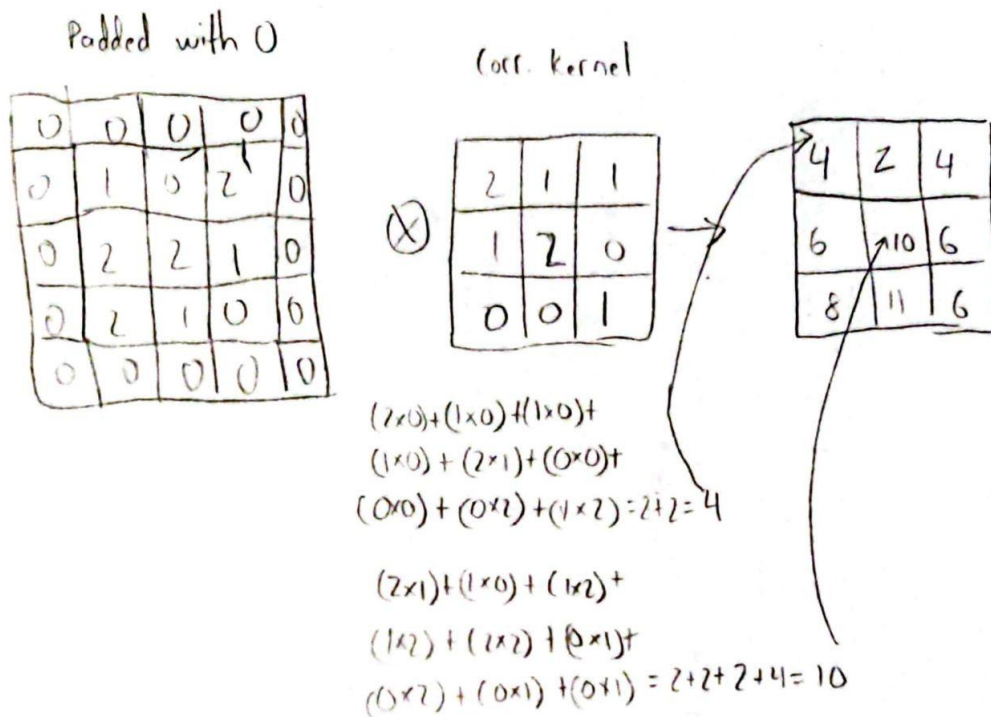 Padded with 0
Corr. kernel
0 0 0 0 0
0 1 0 2 0
0 2 2 1 0
0 2 1 0 0
0 0 0 0 0
⊗
2 1 1
1 2 0
0 0 1
→
4 2 4
6 10 6
8 11 6
(2×0)+(1×0)+(1×0)+
(1×0)+(2×1)+(0×0)+
(0×0)+(0×2)+(1×2)=2+2=4
(2×1)+(1×0)+(1×2)+
(1×2)+(2×2)+(0×1)+
(0×2)+(0×1)+(0×1)=2+2+2+4=10